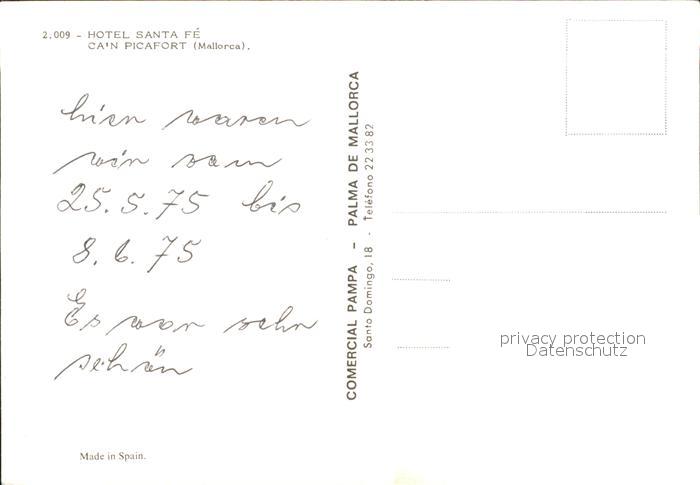 2.009 - HOTEL SANTA FÉ
CA'N PICAFORT (Mallorca).
hier waren
wir vom
25.5.75 bis
8.6.75
Es war sehr
schön
Made in Spain.
COMERCIAL PAMPA - PALMA DE MALLORCA
Santo Domingo, 18 - Teléfono 22 33 82
privacy protection
Datenschutz